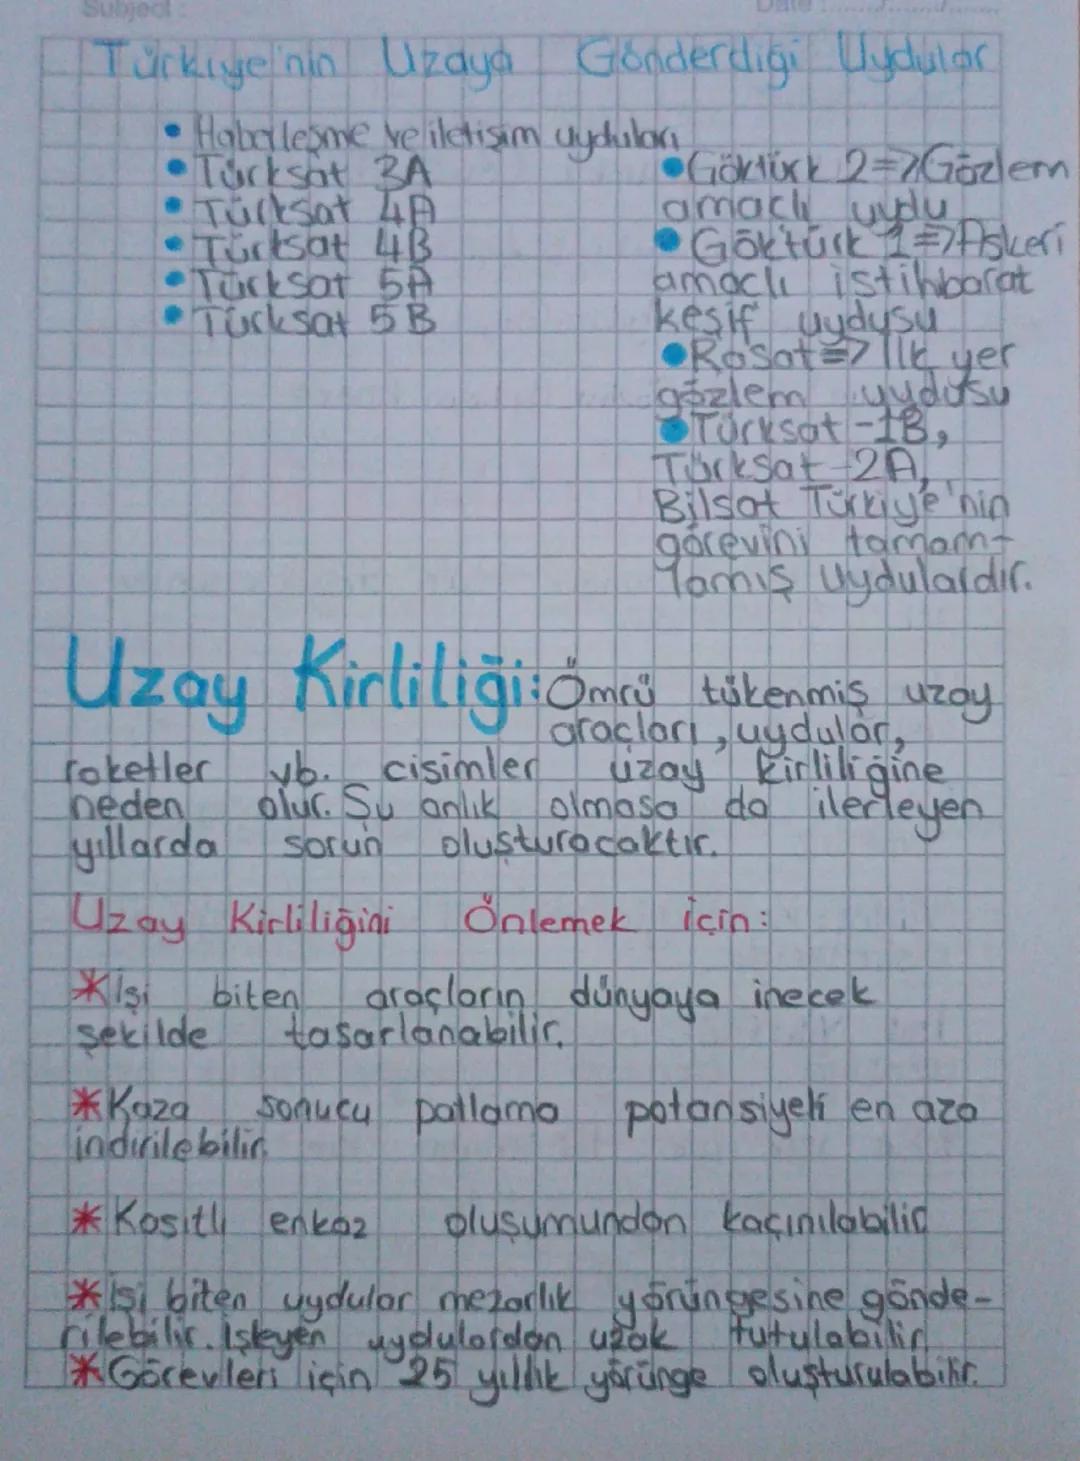 Subject:
Date
Türkiye'nin Uzaya Gönderdiği Uydular
• Haberleşme ve iletişim uyduları
• Türksat 3A
• Türksat 4A
• Türksat 4B
• Türksat 5A
• Türksat 5B
• Göktürk 2=>Gözlem
amaçlı uydu
• Göktürk 1=>Askeri
amaçlı istihbarat
keşif uydusu
• Rasat=> İlk yer
gözlem uydusu
• Türksat-1B,
Türksat-2A,
Bilsat Türkiye'nin
görevini tamam-
lamış uydulardır.
Uzay Kirliliği: Ömrü tükenmiş uzay
araçları, uydular,
roketler vb. cisimler uzay kirliliğine
neden olur. Şu anlık olmasa da ilerleyen
yıllarda sorun oluşturacaktır.
Uzay Kirliliğini Önlemek için:
* İşi biten araçların dünyaya inecek
şekilde tasarlanabilir.
* Kaza sonucu patlama potansiyeli en aza
indirilebilir.
* Kasıtlı enkaz oluşumundan kaçınılabilir
* İşi biten uydular mezarlık yörüngesine gönde-
rilebilir. İşleyen uydulardan uzak tutulabilir
* Görevleri için 25 yıllık yörünge oluşturulabilir.